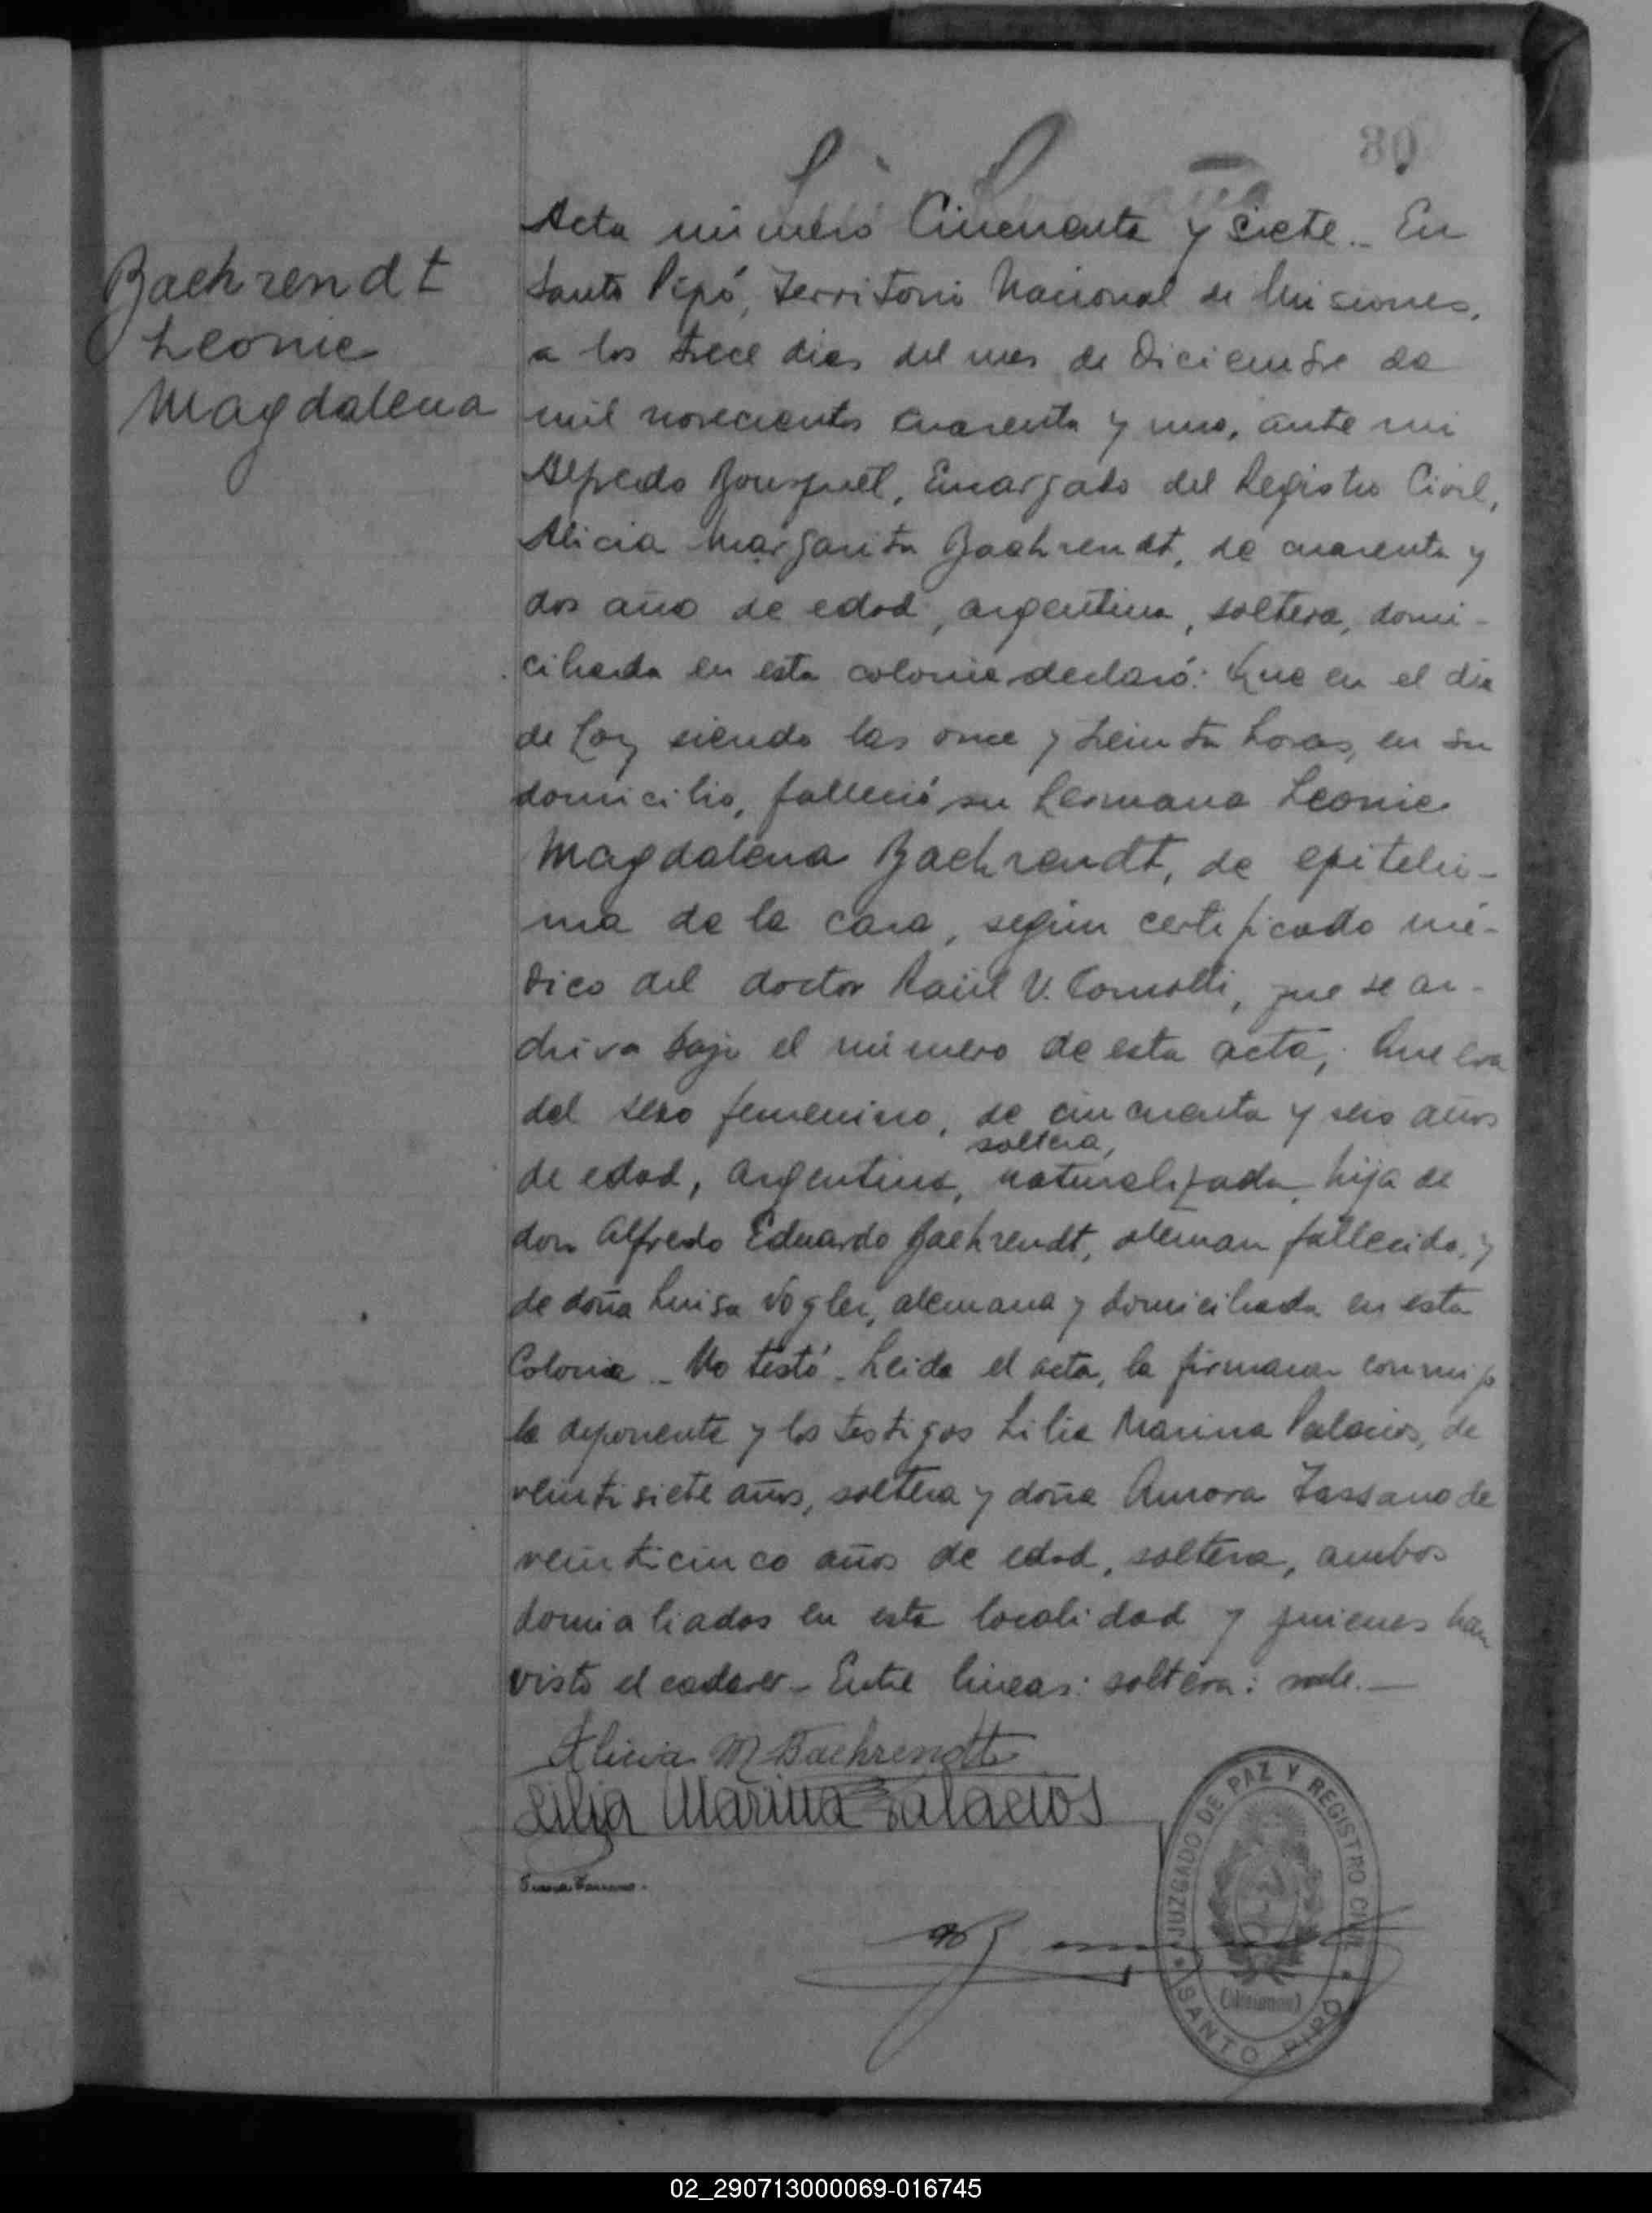 80
Baehrendt
Leonie
Magdalena
Acta número Cincuenta y siete.. En
Santo Pipó, Territorio Nacional de Misiones,
a los trece dias del mes de Diciembre de
mil novecientos cuarenta y uno, ante mi
Alfredo Bousquet, Encargado del Registro Civil,
Alicia Margarita Baehrendt, de cuarenta y
dos año de edad, argentina, soltera, domi-
ciliada en esta colonia declaró: Que en el dia
de hoy siendo las once y treinta horas, en su
domicilio, falleció su hermana Leonie
Magdalena Baehrendt, de epitelio-
ma de la cara, según certificado mé-
dico del doctor Raúl V. Comolli, que se ar-
chiva bajo el número de esta acta; Que era
del sexo femenino, de cincuenta y seis años
soltera,
de edad, argentina, naturalizada, hija de
don Alfredo Eduardo Baehrendt, aleman fallecido, y
de doña Luisa Vogler, alemana y domiciliada en esta
Colonia - No testó - Leida el acta, la firmaron conmigo
la deponente y los testigos Lilia Marina Palacios, de
veintisiete años, soltera y doña Aurora Tassano de
veinticinco años de edad, soltera, ambos
domialiados en esta localidad y quienes han
visto el cadaver - Entre lineas: soltera: vale. —
Alicia M Baehrendt
Lilia Marina Palacios
JUZGADO DE PAZ Y REGISTRO CIVIL
(Misiones)
SANTO PIPO
02_290713000069-016745